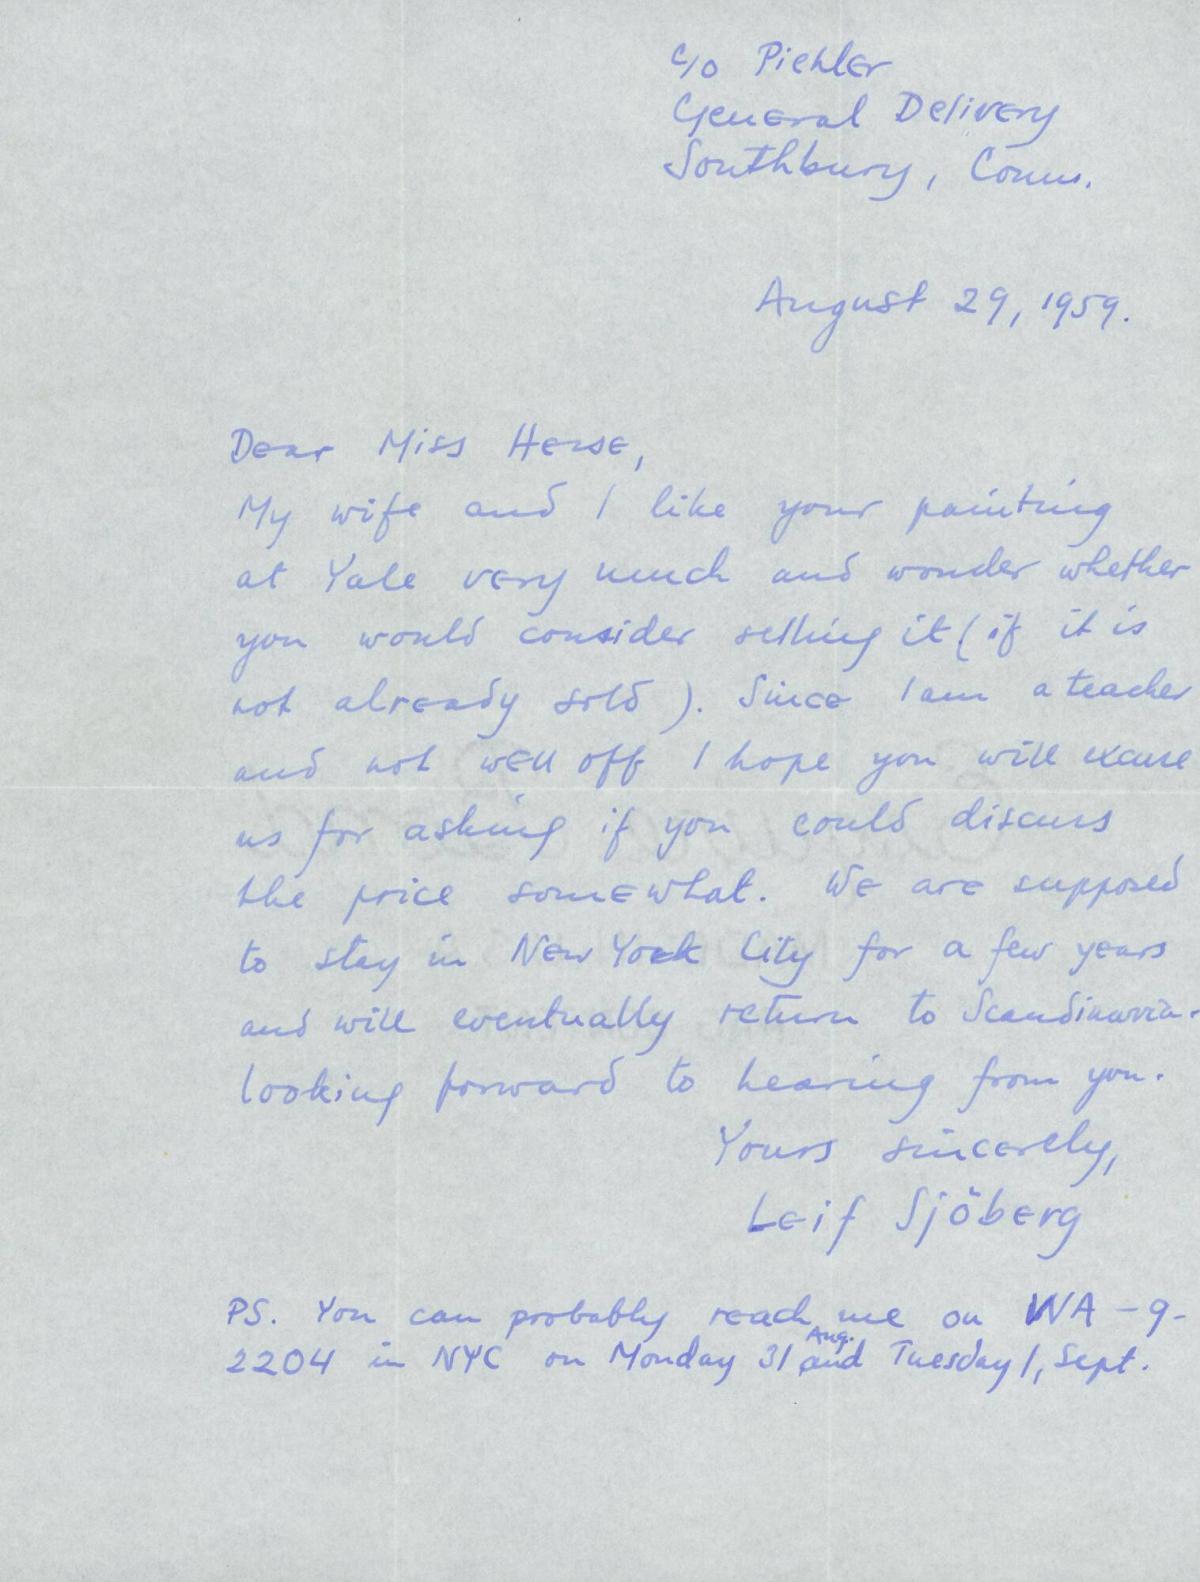 c/o Piehler
General Delivery
Southbury, Conn.
August 29, 1959.
Dear Miss Hesse,
My wife and I like your painting
at Yale very much and wonder whether
you would consider selling it (if it is
not already sold). Since I am a teacher
and not well off I hope you will excuse
us for asking if you could discuss
the price somewhat. We are supposed
to stay in New York City for a few years
and will eventually return to Scandinavia.
Looking forward to hearing from you.
Yours sincerely,
Leif Sjöberg
PS. You can probably reach me on WA-9-
2204 in NYC on Monday 31 Aug. and Tuesday 1, Sept.